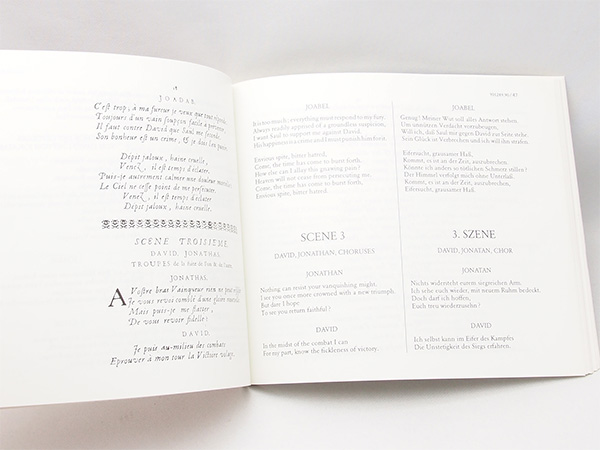 JOADAB.
C'est trop; à ma fureur je veux que tout réponde
Toujours d'un vain soupçon facile à prévenir,
Il faut contre David que Saul me seconde,
Son bonheur est un crime, & je dois l'en punir.
Dépit jaloux, haine cruelle,
Venez, il est temps d'éclater.
Puis-je autrement calmer une douleur mortelle,
Le Ciel ne cesse point de me persecuter.
Venez, il est temps d'éclater
Dépit jaloux, haine cruelle.
SCENE TROISIEME.
DAVID, JONATHAS,
TROUPES de la suite de l'un & de l'autre.
JONATHAS.
A Vostre bras Vainqueur rien ne peut
Je vous revois comblé d'une gloire nouvelle
Mais puis-je me flater,
De vous revoir fidelle?
DAVID.
Je puis au-milieu des combats
Eprouver à mon tour la Victoire volage,
JOABEL
It is too much; everything must respond to my fury,
Always readily apprised of a groundless suspicion,
I want Saul to support me against David.
His happiness is a crime and I must punish him for it.
Envious spite, bitter hatred,
Come, the time has come to burst forth.
How else can I allay this gnawing pain?
Heaven will not cease from persecuting me.
Come, the time has come to burst forth,
Envious spite, bitter hatred.
SCENE 3
DAVID, JONATHAN, CHORUSES
JONATHAN
Nothing can resist your vanquishing might,
I see you once more crowned with a new triumph.
But dare I hope
To see you return faithful?
DAVID
In the midst of the combat I can
For my part, know the fickleness of victory.
JOABEL
Genug! Meiner Wut soll alles Antwort stehen,
Um unnützen Verdacht vorzubeugen.
Will ich, daß Saul mir gegen David zur Seite stehe.
Sein Glück ist Verbrechen und ich will ihn strafen.
Eifersucht, grausamer Haß,
Kommt, es ist an der Zeit, auszubrechen.
Könnte ich anders so tödtlichen Schmerz stillen?
Das Himmel verfolgt mich ohne Unterlaß.
Kommt, es ist an der Zeit, auszubrechen,
Eifersucht, grausamer Haß.
3. SZENE
DAVID, JONATAN, CHOR
JONATAN
Nichts widersteht eurem siegreichen Arm,
Ich sehe euch wieder, mit neuem Ruhm bedeckt.
Doch darf ich hoffen,
Euch treu wiederzusehn?
DAVID
Ich selbst kann im Eifer des Kampfes
Die Unstetigkeit des Siegs erfahren.